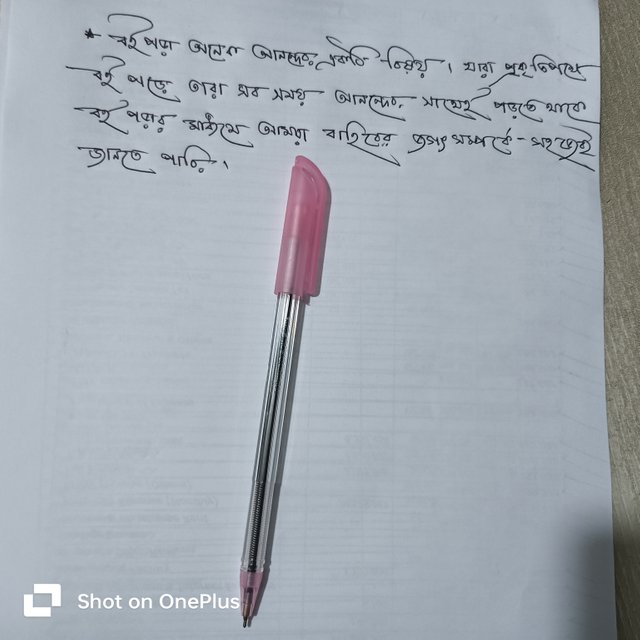 * বই পড়া অনেক আনন্দের একটি বিষয়। যারা প্রকৃতিপক্ষে
বই পড়ে তারা সব সময় আনন্দের সাথেই পড়তে থাকে
বই পড়ার মাধ্যমে আমরা বাহিরের জগৎ সম্পর্কে সহজেই
জানতে পারি।
Shot on OnePlus